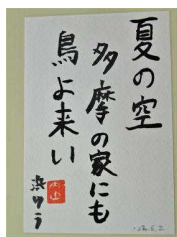 夏の空
多摩の家にも
鳥よ来い